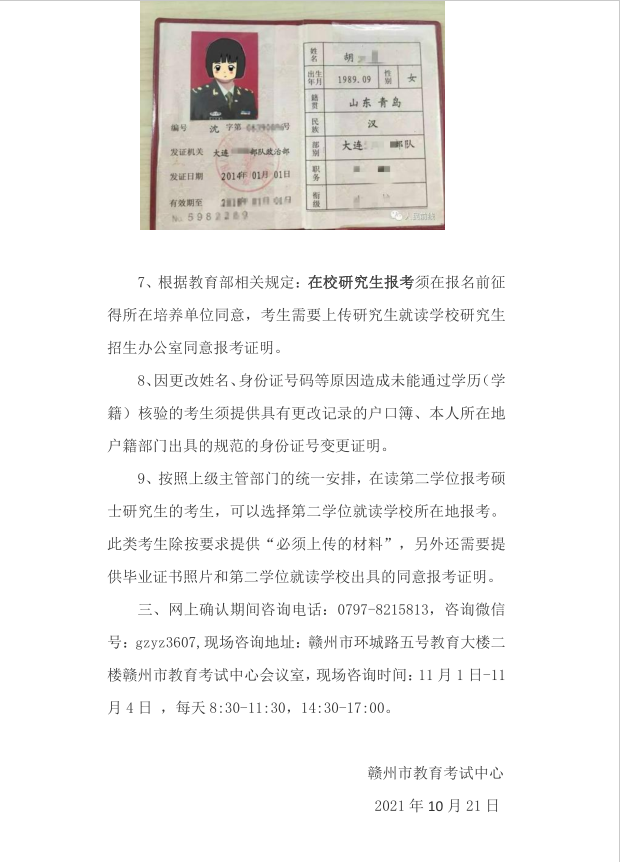 姓名 胡
出生年月 1989.09 性别 女
籍贯 山东青岛
民族 汉
部别 大连 部队
职务
衔级
编号 沈 字第 号
发证机关 大连 部队政治部
发证日期 2014年01月01日
有效期至 年01月01日
No.5982289
7、根据教育部相关规定：在校研究生报考须在报名前征
得所在培养单位同意，考生需要上传研究生就读学校研究生
招生办公室同意报考证明。
8、因更改姓名、身份证号码等原因造成未能通过学历（学
籍）核验的考生须提供具有更改记录的户口簿、本人所在地
户籍部门出具的规范的身份证号变更证明。
9、按照上级主管部门的统一安排，在读第二学位报考硕
士研究生的考生，可以选择第二学位就读学校所在地报考。
此类考生除按要求提供“必须上传的材料”，另外还需要提
供毕业证书照片和第二学位就读学校出具的同意报考证明。
三、网上确认期间咨询电话：0797-8215813，咨询微信
号：gzyz3607,现场咨询地址：赣州市环城路五号教育大楼二
楼赣州市教育考试中心会议室，现场咨询时间：11月1日-11
月4日 ，每天8:30-11:30，14:30-17:00。
赣州市教育考试中心
2021年10月21日